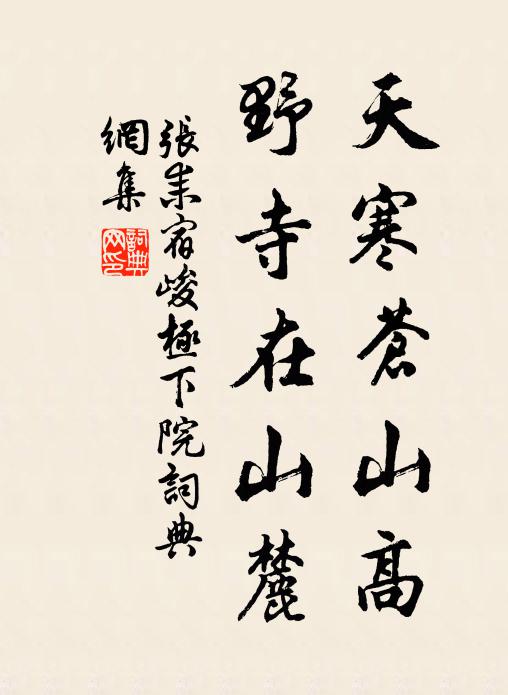 天寒蒼山高
野寺在山麓
張耒宿峻極下院詞典
網集
詞典網印